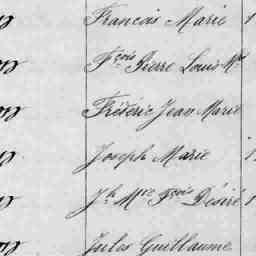 Francois Marie 1
Fçois Pierre Louis Mie
Frédéric Jean Marie
Joseph Marie 1
Jh Mie Fçois Désiré 1
Jules Guillaume